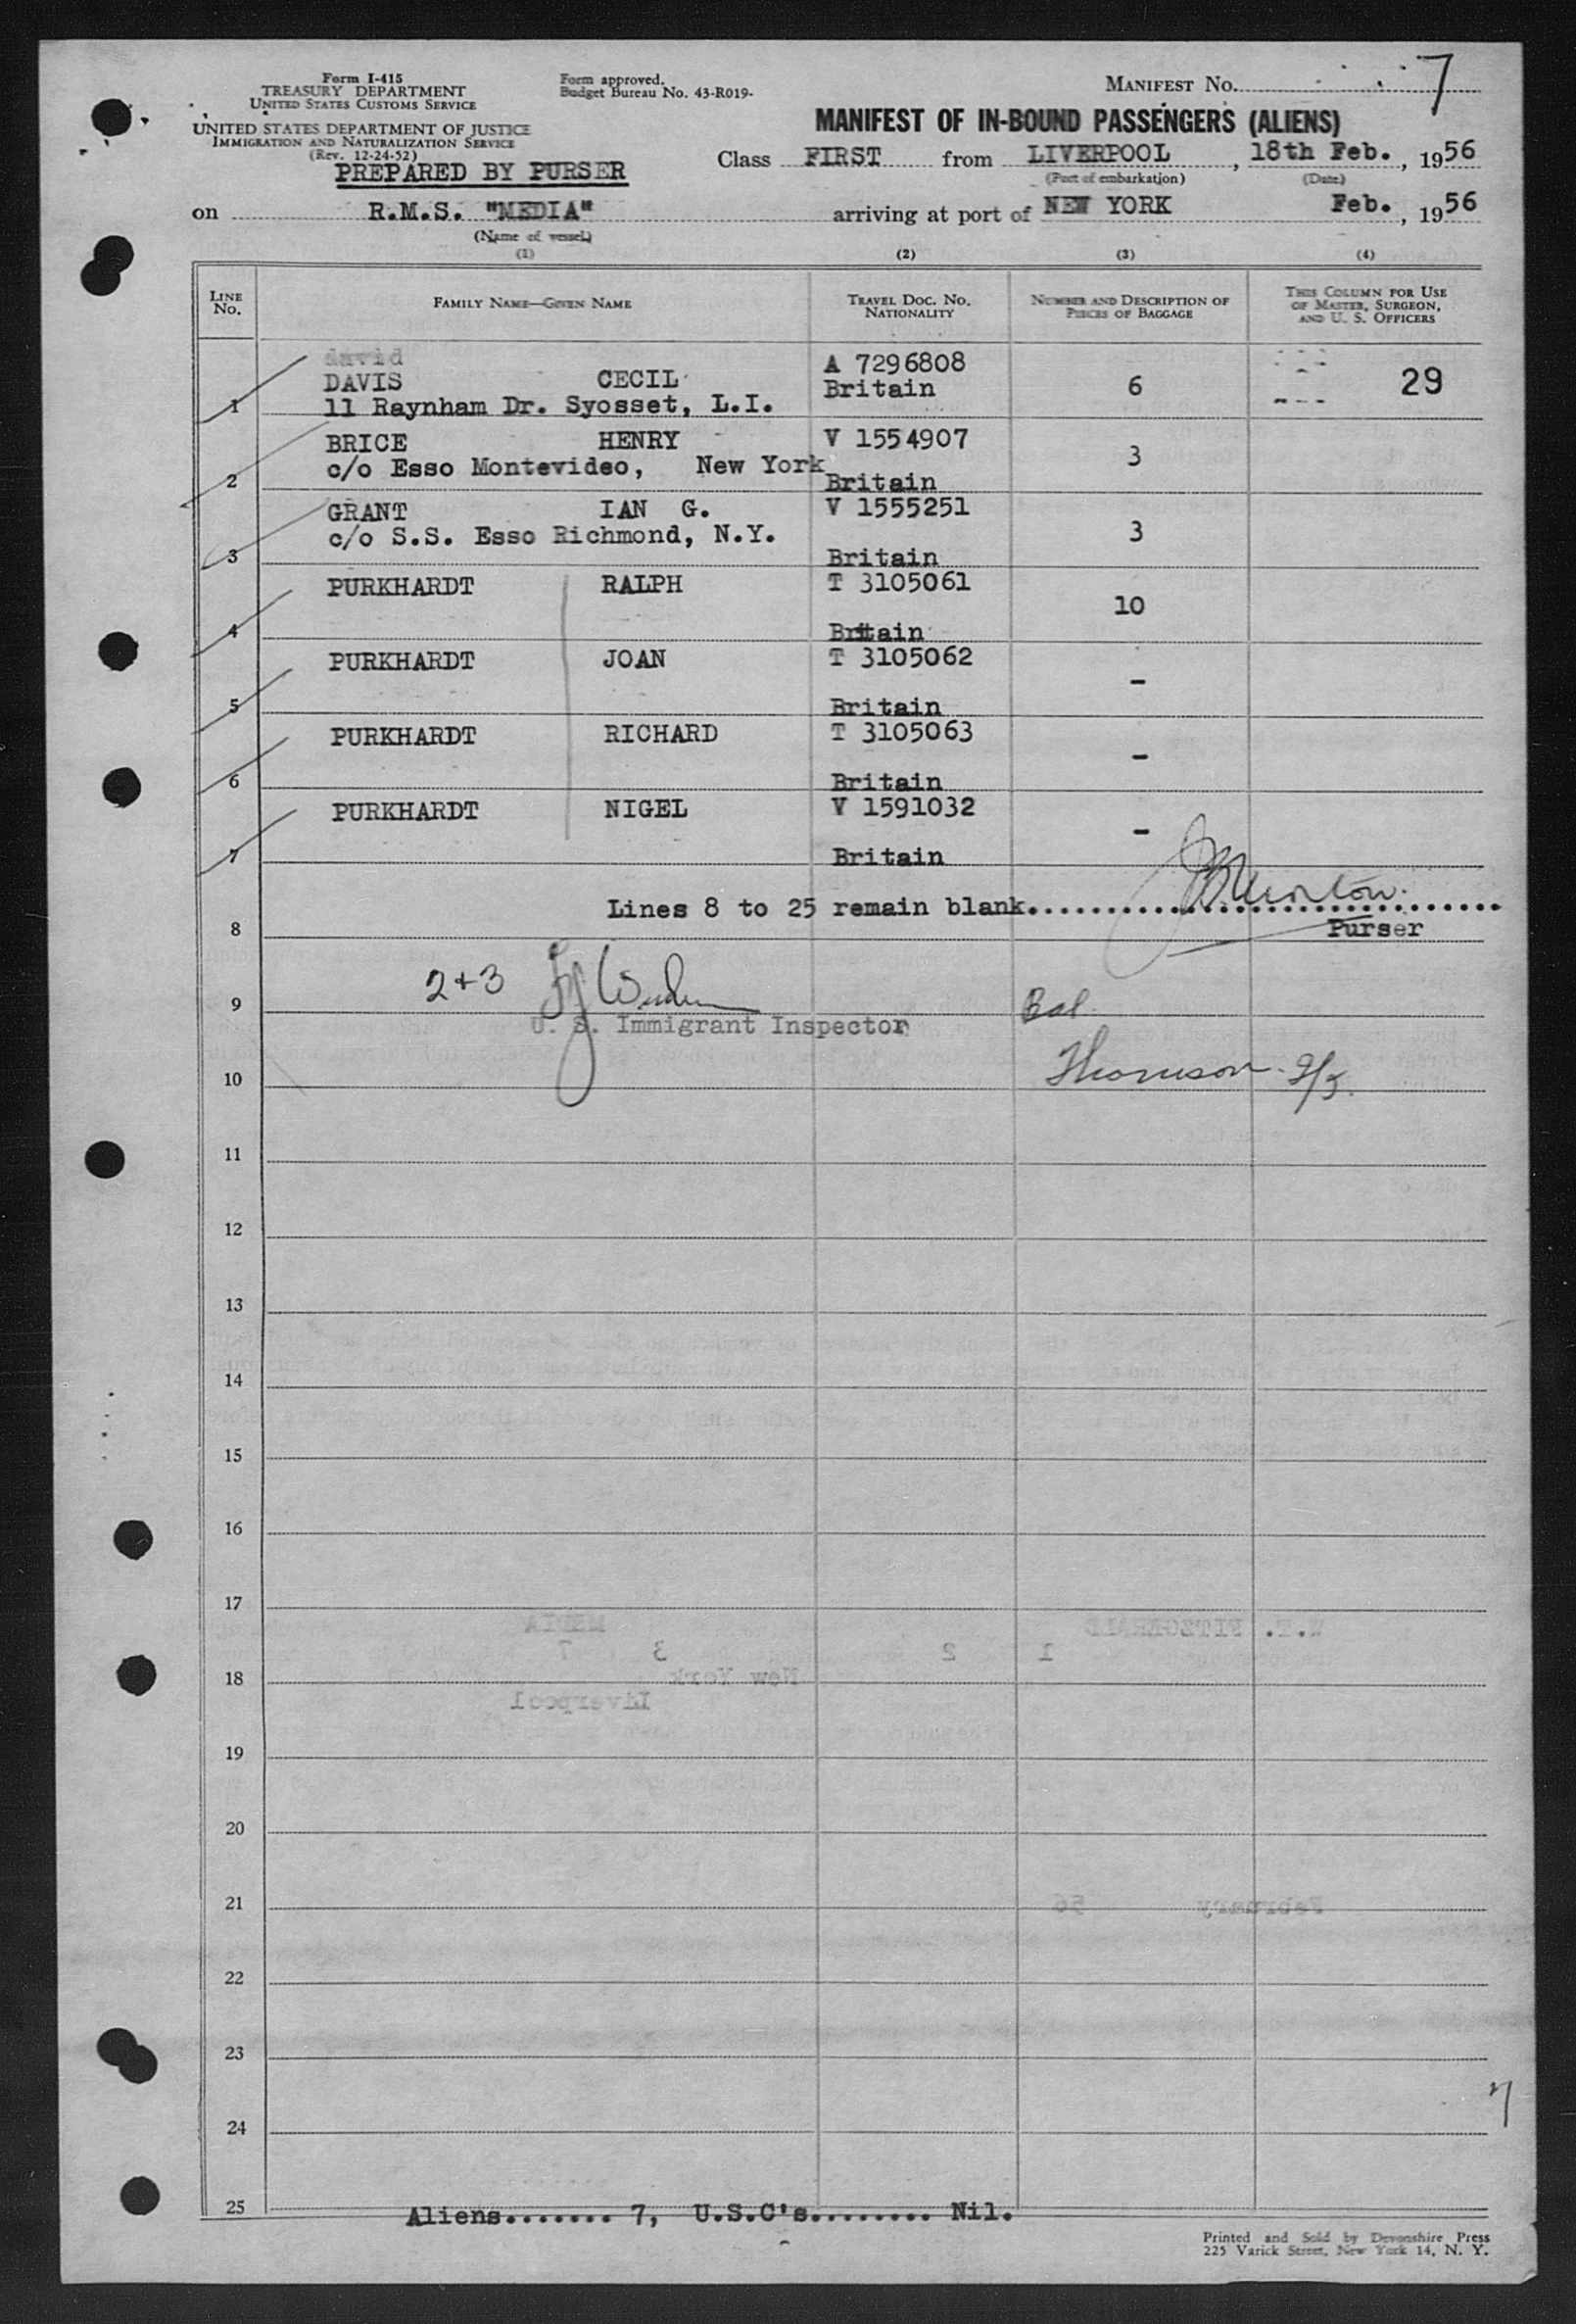 Form I-415
TREASURY DEPARTMENT
UNITED STATES CUSTOMS SERVICE
UNITED STATES DEPARTMENT OF JUSTICE
IMMIGRATION AND NATURALIZATION SERVICE
(Rev. 12-24-52)
PREPARED BY PURSER
Form approved.
Budget Bureau No. 43-R019-
MANIFEST NO. 7
MANIFEST OF IN-BOUND PASSENGERS (ALIENS)
Class FIRST from LIVERPOOL, 18th Feb., 1956
(Port of embarkation) (Date)
on R.M.S. "MEDIA" arriving at port of NEW YORK Feb., 1956
(Name of vessel)
(1) (2) (3) (4)
LINE NO. FAMILY NAME—GIVEN NAME TRAVEL DOC. NO. NATIONALITY NUMBER AND DESCRIPTION OF PIECES OF BAGGAGE THIS COLUMN FOR USE OF MASTER, SURGEON, AND U. S. OFFICERS
david A 7296808
1 DAVIS CECIL Britain 6 29
11 Raynham Dr. Syosset, L.I.
2 BRICE HENRY V 1554907 3
c/o Esso Montevideo, New York Britain
3 GRANT IAN G. V 1555251 3
c/o S.S. Esso Richmond, N.Y. Britain
4 PURKHARDT RALPH T 3105061 10
Britain
5 PURKHARDT JOAN T 3105062 -
Britain
6 PURKHARDT RICHARD T 3105063 -
Britain
7 PURKHARDT NIGEL V 1591032 -
Britain
8 Lines 8 to 25 remain blank..............................
Purser
9 2+3 Bal.
U. S. Immigrant Inspector
10 Thomson
11
12
13
14
15
16
17
MEDIA
1 2 3 7
18 New York
Liverpool
19
20
21 February 56
22
23
24
7
25 Aliens....... 7, U.S.C's........ Nil.
Printed and Sold by Devonshire Press
225 Varick Street, New York 14, N. Y.